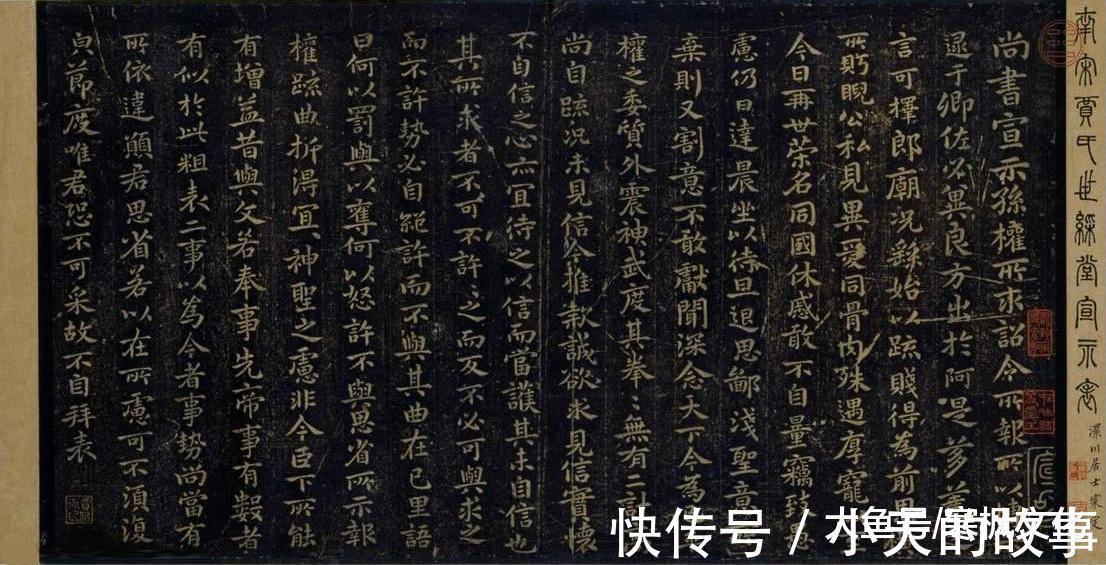 南宋賈氏世綵堂宣示表
深川居士
尚書宣示孫權所求詔令所報所以
逮于卿佐必冀良方出於阿是芻蕘
言可擇郎廟况繇始以疏賤得為前恩
所眄睨公私見異愛同骨肉殊遇厚寵
今日再世榮名同國休慼敢不自量竊致愚
慮仍日達晨坐以待旦退思鄙淺聖意
棄則又割意不敢獻聞深念天下今為
權之委質外震神武度其拳々無有二計
尚自疏况未見信今推款誠欲求見信實懷
不自信之心亦宜待之以信而當護其未自信也
其所求者不可不許々之而反不必可與求之
而不許勢必自絕許而不與其曲在己里語
曰何以罰與以奪何以怒許不與思省所示報
權疏曲折得宜々神聖之慮非今臣下所能
有增益昔與文若奉事先帝事有數者
有似於此粗表二事以為今者事勢尚當有
所依違願君思省若以在所慮可不須復
皃節度唯君恐不可采故不自拜表
快传号 / 小天的故事
大鱼号/寒枫文生